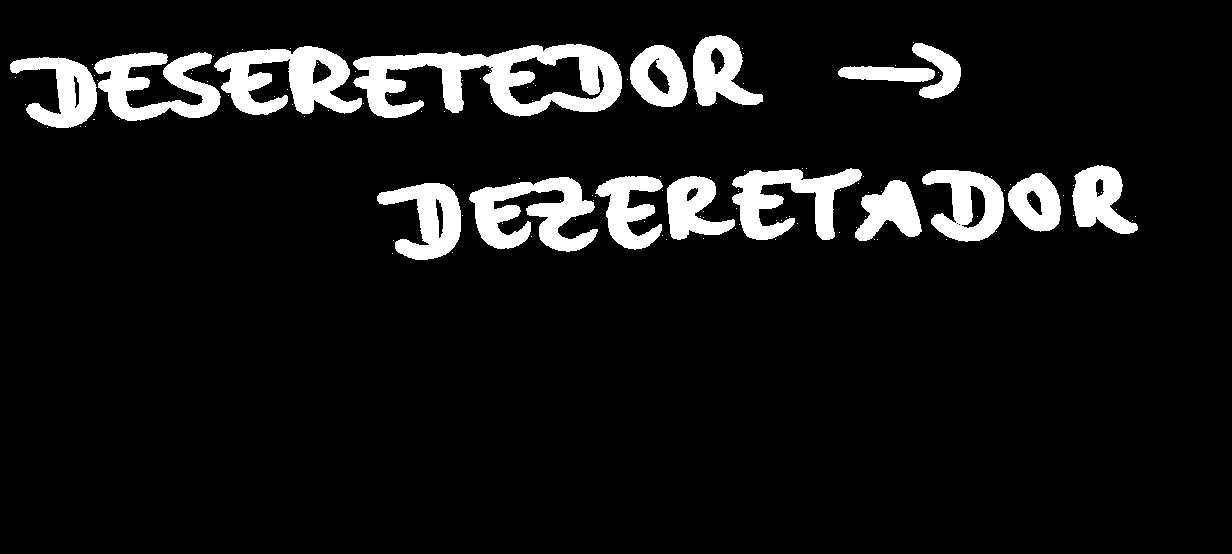 DESERETEDOR →
DEZERETADOR